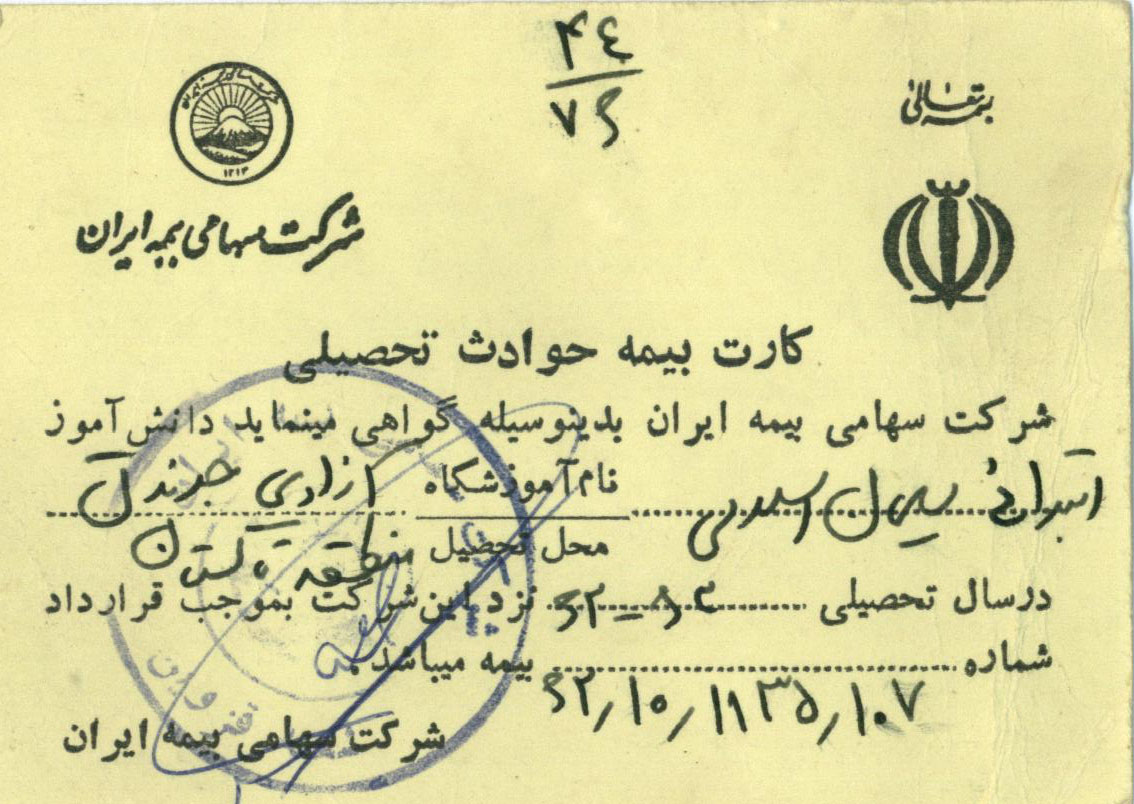 بسمه تعالی
۴۴
۷۶
۱۳۱۴
شرکت سهامی بیمه ایران
کارت بیمه حوادث تحصیلی
شرکت سهامی بیمه ایران بدینوسیله گواهی مینماید دانش‌آموز
نام‌آموزشگاه آزادی
محل تحصیل منطقه تاکستان
درسال تحصیلی نزد این شرکت بموجب قرارداد
شماره بیمه میباشد.
۶۲/۱۰/۱۱۳۵/۱۰۷
شرکت سهامی بیمه ایران